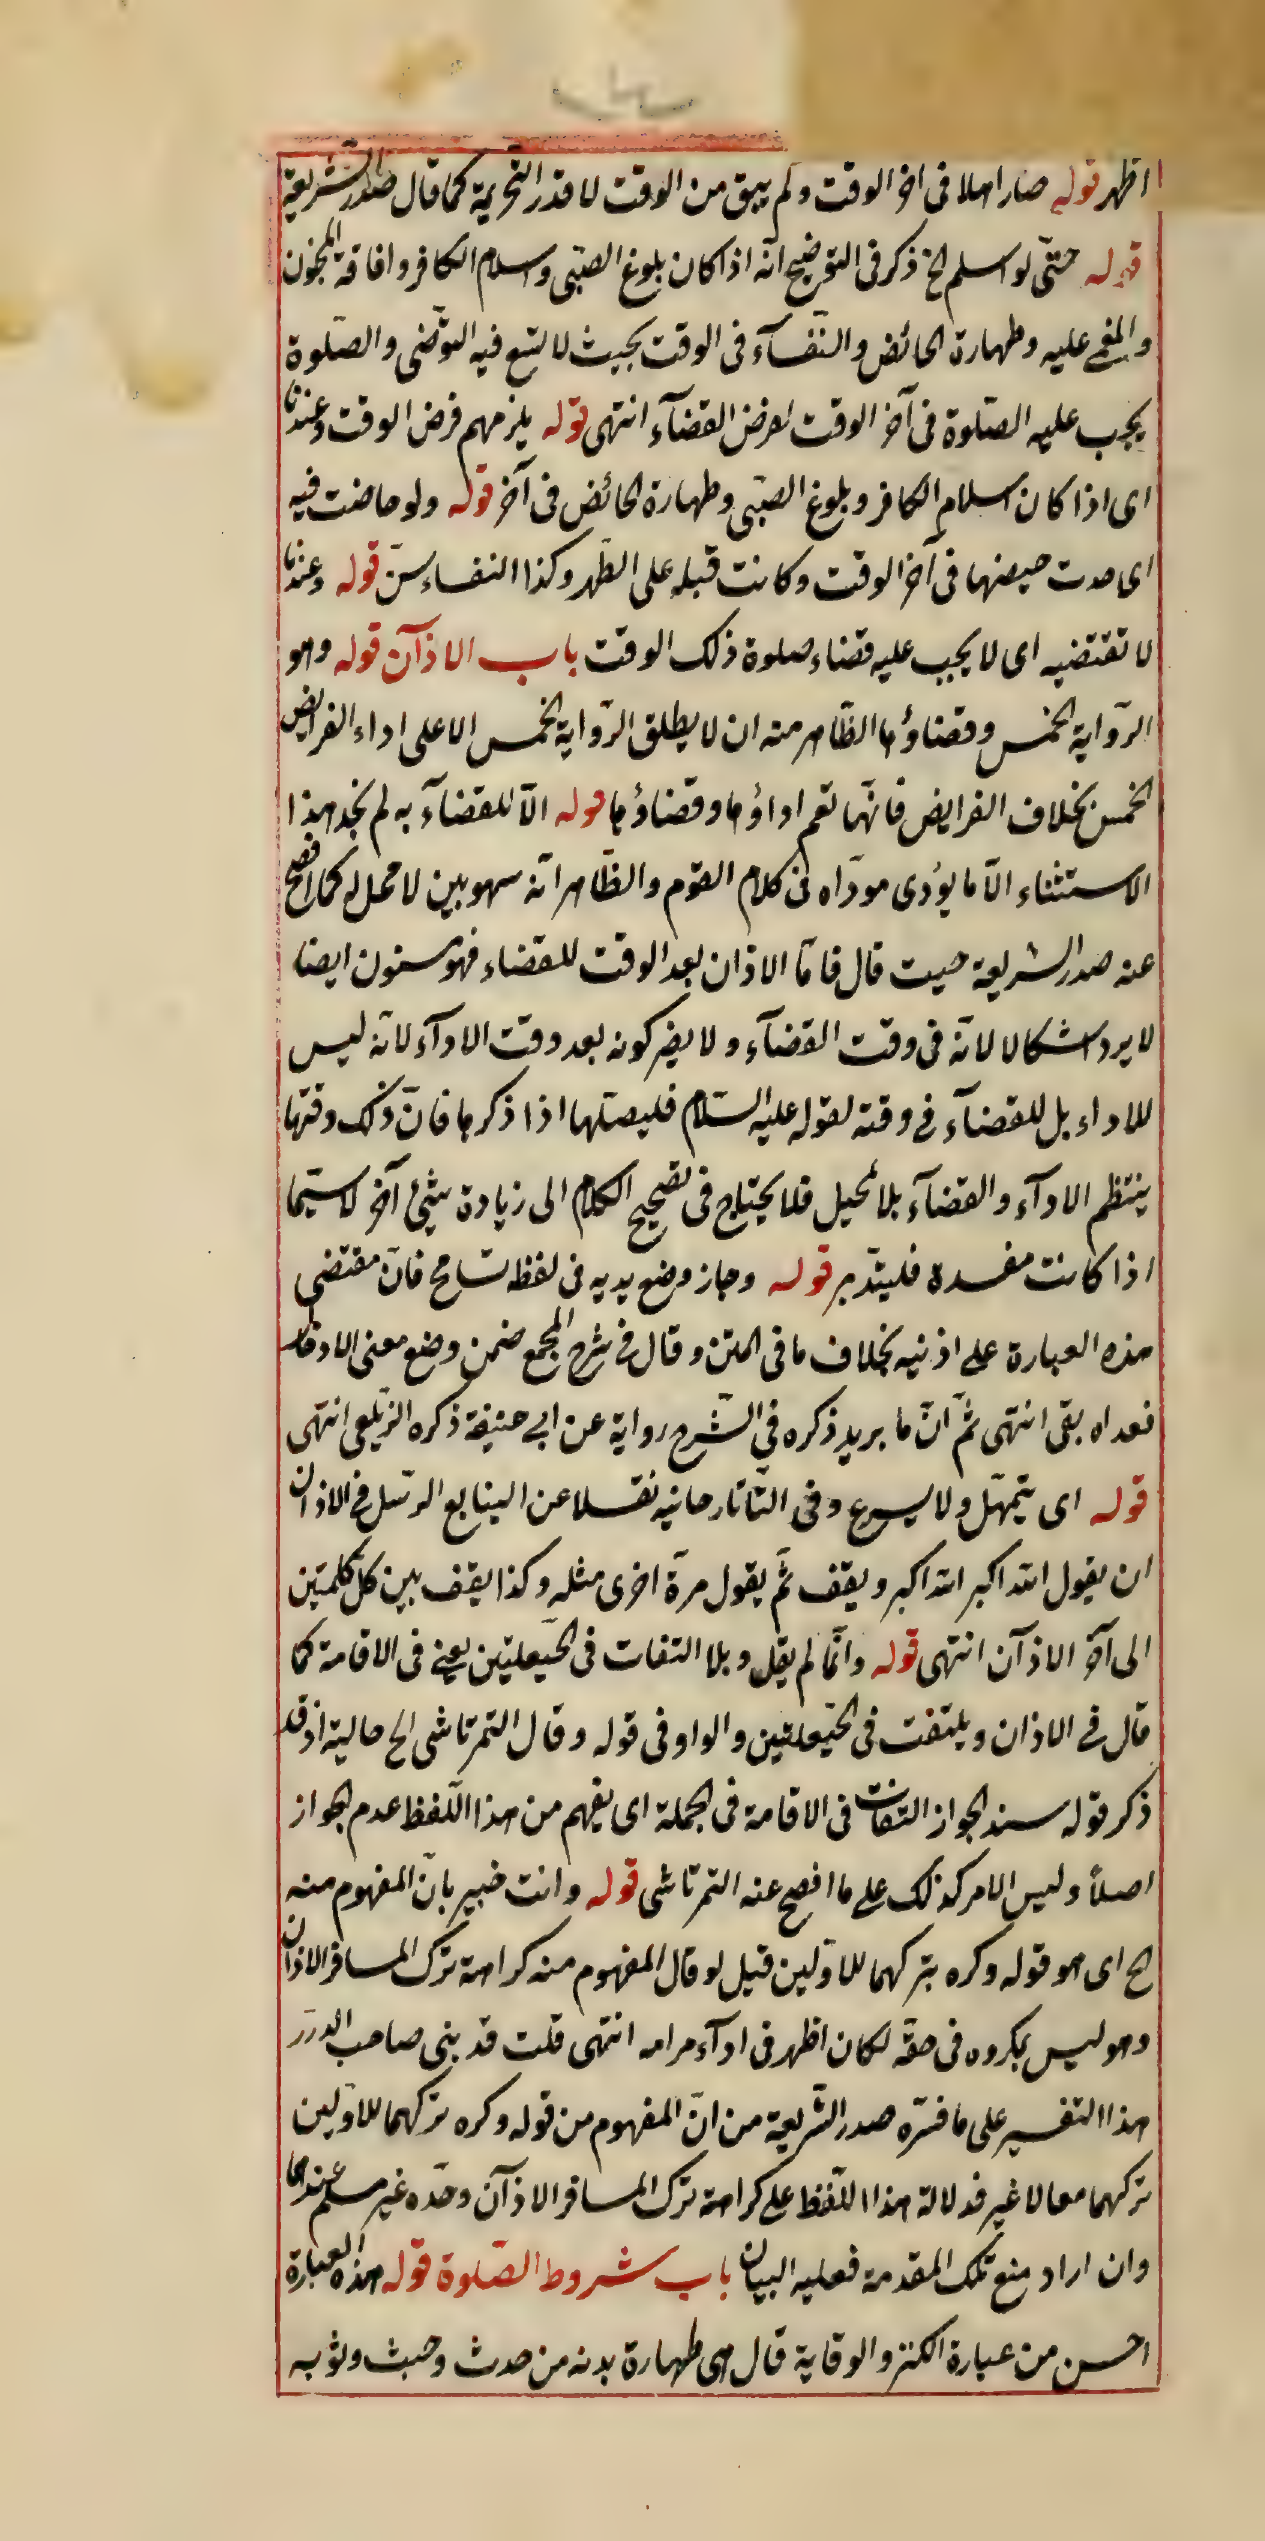 اظهر قوله صار اهلا فى اخر الوقت ولم يبق من الوقت لا قدر التحريمة كما قال صدر الشريعة
قوله حتّى لو اسلم الخ ذكر فى التوضيح انّه اذا كان بلوغ الصّبى واسلام الكافر وافاقة المجنون
والمغمى عليه وطهارة الحائض والنّفسآء فى الوقت بحيث لا تسع فيه التوضى والصّلوة
يجب عليه الصّلوة فى آخر الوقت لغرض القضآء انتهى قوله يلزمهم فرض الوقت وعندنا
اى اذا كان اسلام الكافر وبلوغ الصّبى وطهارة الحائض فى آخر قوله ولو حاضت فيه
اى حدث حيضها فى آخر الوقت وكانت قبله على الطّهر وكذا النفساء قوله وعندنا
لا تقتضيه اى لا يجب عليه قضاء صلوة ذلك الوقت باب الاذآن قوله وهو
الرّواية الخمس وقضاؤها الظّاهر منه ان لا يطلق الرّواية الخمس الا على اداء الفرايض
الخمس بخلاف الفرايض فانّها تعم اداؤها وقضاؤها قوله الاّ للقضآء به لم نجد هذا
الاستثناء الاّ ما يؤدى مودّاه فى كلام القوم والظّاهر انّه سهو بين لا محمل له كما افصح
عنه صدر الشريعة حيث قال فامّا الاذان بعد الوقت للقضاء فهو مسنون ايضا
لا يرد اشكالا لانّه فى وقت القضآء ولا يضر كونه بعد وقت الادآء لانّه ليس
للاداء بل للقضآء فى وقته لقوله عليه السّلام فليصلّها اذا ذكرها فانّ ذلك وقتها
ينتظم الادآء والقضآء بلا تمحيل فلا يحتاج فى تصحيح الكلام الى زيادة شئ آخر لا سيّما
اذا كانت مفسده فليتدّبر قوله وجاز وضع يديه فى لفظه تسامح فانّ مقتضى
هذه العبارة على اذنيه بخلاف ما فى المتن وقال فى شرح المجمع ضمن وضع معنى الادخال
فعداه بفى انتهى ثمّ انّ ما يريد ذكره فى الشّرح رواية عن ابى حنيفة ذكره الزيلعى انتهى
قوله اى يتمهّل ولا يسرع وفى التّاتارخانيه نقلا عن الينابيع الترسّل فى الاذان
ان يقول الله اكبر الله اكبر ويقف ثمّ يقول مرّة اخرى مثله وكذا يقف بين كلّ كلمتين
الى آخر الاذآن انتهى قوله وانّما لم يقل وبلا التفات فى الحيّعلتين يعنى فى الاقامة كما
قال فى الاذان ويلتفت فى الحيّعلتين والواو فى قوله وقال التمرتاشى الخ حالية اذ قد
ذكر قوله سند الجواز التفات فى الاقامة فى الجملة اى يفهم من هذا اللّفظ عدم الجواز
اصلاً وليس الامر كذلك على ما افصح عنه التمرتاشى قوله وانت خبير بانّ المفهوم منه
الخ اى هو قوله وكره بتركهما للاوّلين قيل لو قال المفهوم منه كراهة ترك المسافر الاذان
وهو ليس بمكروه فى حقّه لكان اظهر فى ادآء مرامه انتهى قلت قد بنى صاحب الدرر
هذا التفسير على ما فسّره صدر الشّريعة من انّ المفهوم من قوله وكره تركهما للاوّلين
تركهما معا لا غير فدلالة هذا اللّفظ على كراهة ترك المسافر الاذآن وحدّه غير مسلم عندهما
وان اراد منع تلك المقدمة فعليه البيان باب شروط الصّلوة قوله هذه العبارة
احسن من عبارة الكنز والوقاية قال هى طهارة بدنه من حدث وخبث وثوبه